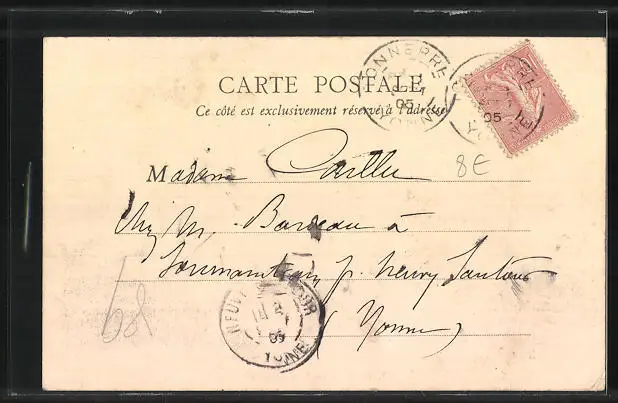 CARTE POSTALE
Ce côté est exclusivement réservé à l'adresse
TONNERRE
05
YONNE
05
8€
Madame Caillu
Chez M. Bardeau à
p. neuvy Sautour
(Yonne)
SAUTOUR
YONNE
68